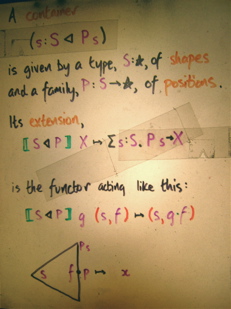 A container
(s:S ◁ Ps)
is given by a type, S:★, of shapes
and a family, P:S→★, of positions.
Its extension,
⟦S◁P⟧ X ↦ Σs:S. Ps→X
is the functor acting like this:
⟦S◁P⟧ g (s,f) ↦ (s,g·f)
Ps
s f p ↦ x